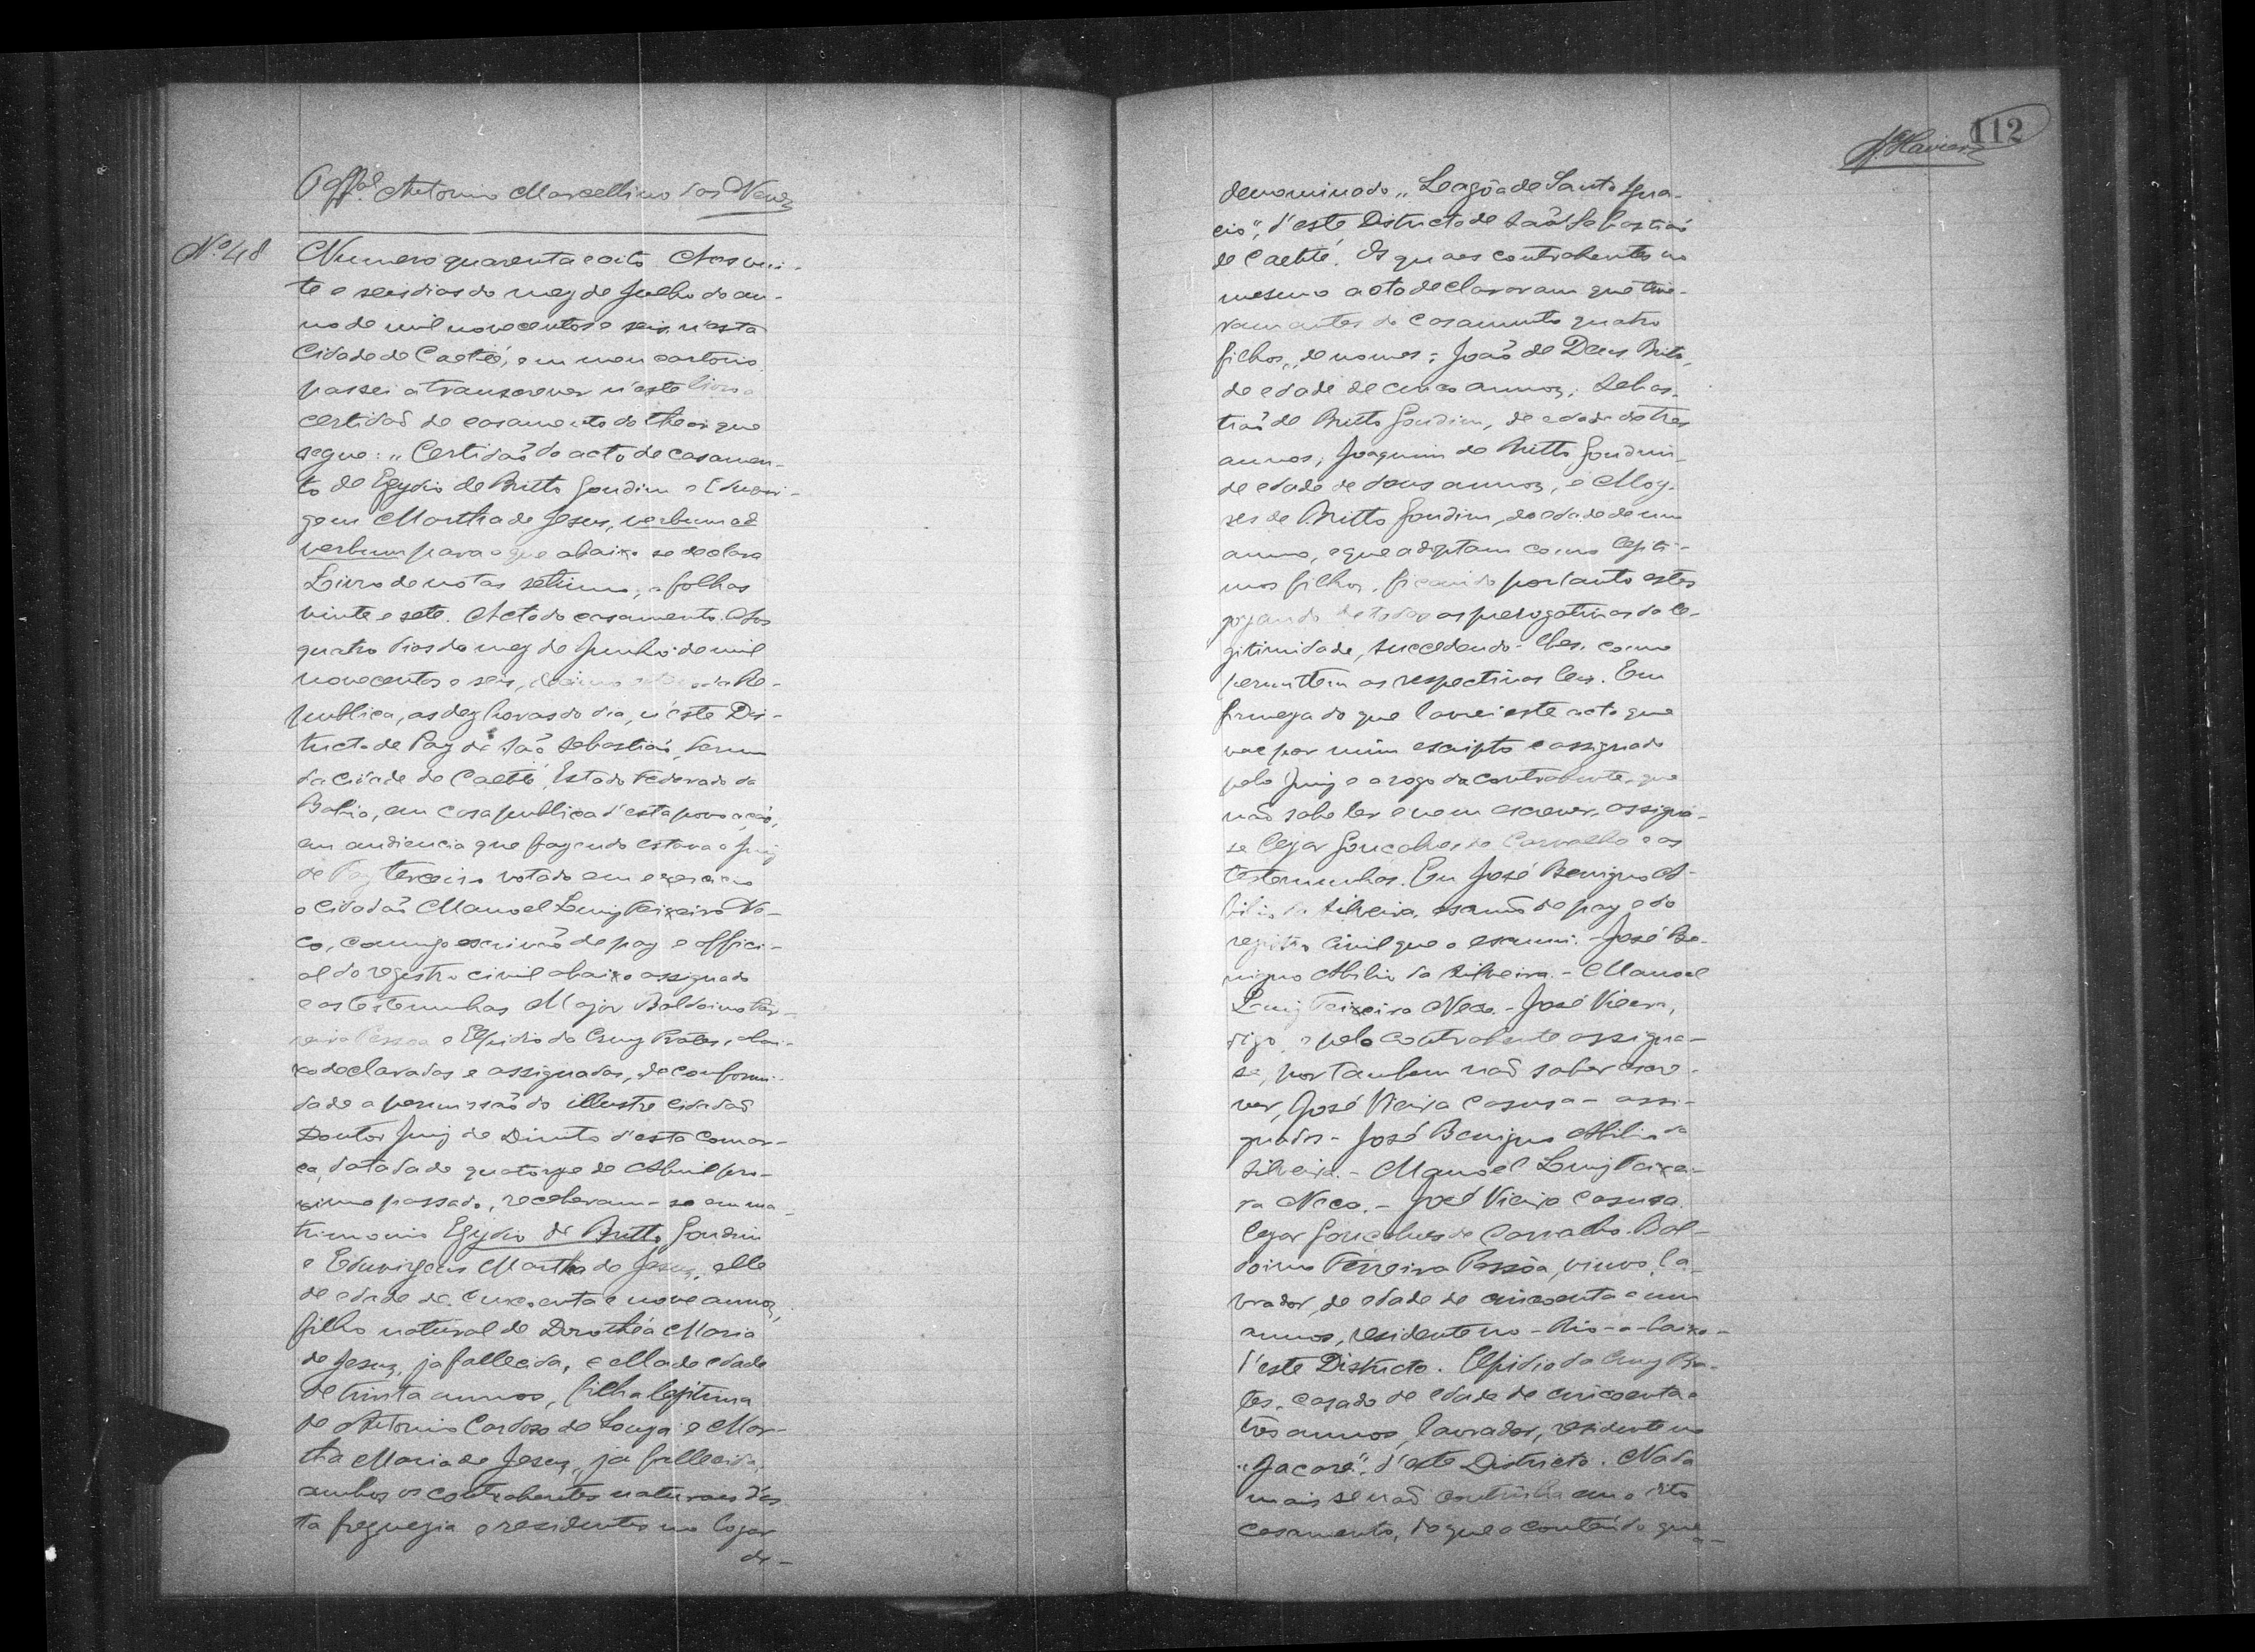 112
O Offal Antonio Marcellino das Neves
Nº 48
Numero quarenta e oito Aos vin-
te e seis dias do mez de Julho do an-
no de mil novecentos e seis, n'esta
Cidade de Caetité, em meu cartorio
passei a transcrever n'este livro a
certidaõ de casamento do theor que
segue: „Certidaõ do acto de casamen-
to de Egydio de Britto Gondim e Eduvir-
gem Martha de Jesus, verbum ad
verbum para o que abaixo se declara
Livro de notas setimo, a folhas
vinte e sete. Acto do casamento. Aos
quatro dias do mez de Junho de mil
novecentos e seis, da Re-
publica, as dez horas do dia, n'este Dis-
tricto de Paz de Saõ Sebastiaõ, termo
da cidade de Caetité, Estado Federado da
Bahia, em casa publica d'esta povoaçaõ,
em audiencia que fazendo estava o Juiz
de Paz terceiro votado em exercicio
o cidadaõ Manoel Luiz Teixeira Ne-
co, comigo escrivaõ de paz e offici-
al do registro civil abaixo assignado
e as testemunhas Major Baldoino Fer-
reira Pessoa e Elpidio da Cruz Prates, abai-
xo declaradas e assignadas, de conformi-
dade a permissaõ do illustre cidadaõ
Doutor Juiz de Direito d'esta Comar-
ca, datada de quatorze de Abril pro-
ximo passado, receberam-se em ma-
trimonio Egydio de Britto Gondim
e Eduvirgens Martha de Jesus, elle
de edade de cincoenta e nove annos,
filho natural de Dorothéa Maria
de Jesus, ja fallecida, e ella de edade
de trinta annos, filha legitima
de Antonio Cardoso de Souza e Mar-
tha Maria de Jesus, ja fallecida,
ambos os contrahentes naturaes d'es-
ta freguezia e residentes no logar
de-
denominado „Lagôa de Santo Igna-
cio", d'este Districto de Saõ Sebastiaõ
de Caetité. Os quaes contrahentes no
mesmo acto declararam que tive-
ram antes do casamento quatro
filhos, de nomes: Joaõ de Deus Brito,
de edade de cinco annos; Sebas-
tiaõ de Britto Gondim, de edade de tres
annos; Joaquim de Britto Gondim
de edade de dous annos, e Moy-
ses de Britto Gondim, de edade de um
anno, e que adoptam como legiti-
mos filhos, ficando portanto estes
gozando de todas as prerogativas da le-
gitimidade, succedendo-lhes, como
permittem as respectivas leis. Em
firmeza do que lavrei este acto que
vae por mim escripto e assignado
pelo Juiz e a rogo da contrahente, que
naõ sabe ler e nem escrever, assigna-
se Cezar Gonçalves de Carvalho e as
testemunhas. Eu José Benigno A-
bilio da Silveira, escrivaõ de paz e do
registro civil que o escrevi. - José Be-
nigno Abilio da Silveira. - Manoel
Luiz Teixeira Neco. - José Vieira,
digo, e pelo contrahente assigna-
se, por tambem naõ saber escre-
ver, José Vieira Casusa - assi-
gnados - José Benigno Abilio da
Silveira. - Manoel Luiz Teixei-
ra Neco. - José Vieira Casusa.
Cezar Gonçalves de Carvalho. Bal-
doino Ferreira Pessôa, viuvo, la-
vrador, de edade de cincoenta e um
annos, residente no - Rio-a-baixo -
d'este Districto. Elpidio da Cruz Pra-
tes, casado de edade de cincoenta e
tres annos, lavrador, residente no
„Jacaré", d'este Districto. Nada
mais se naõ continha em o dito
casamento, do que o conteúdo que
a-